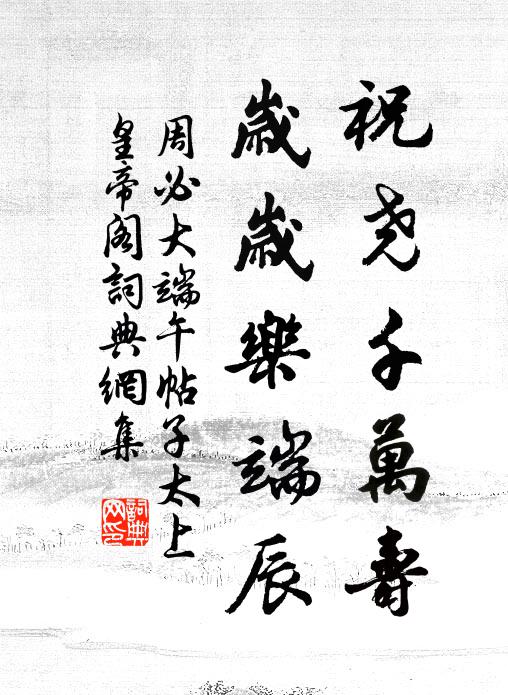 祝尧千萬壽
歲歲樂端辰
周必大端午帖子太上
皇帝阁詞典網集
詞典
网印